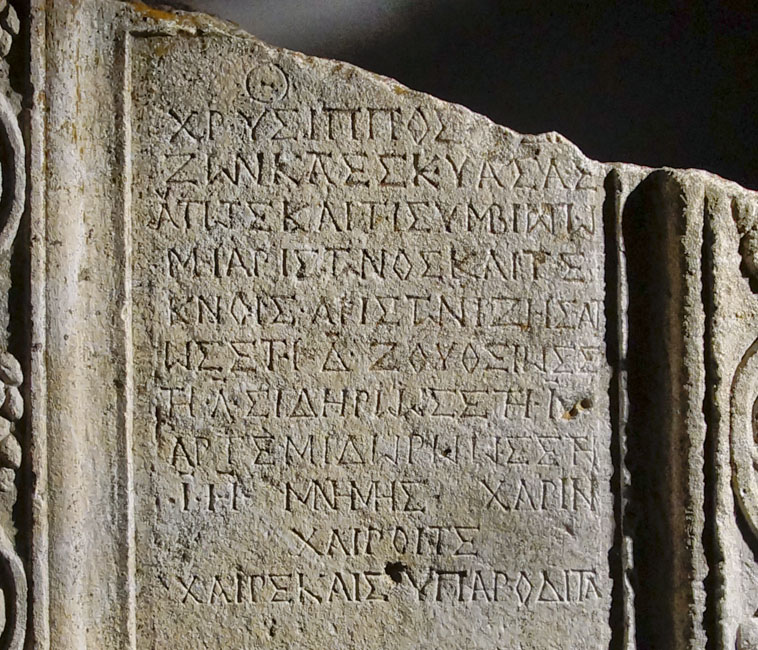 Θ
ΧΡΥΣΙΠΠΟΣ
ΖΩΝΚΑΕΣΚ·ΥΑΣΑΣ
ΑΤΩΤΕΚΑΙΤΙΣΥΜΒΙΩΤΩ
ΜΗΑΡΙΣΤΑΙΝΟΣΚΑΙΤΕ
ΚΝΟΙΣ·ΑΡΙΣΤΩΝΙΖΗΣΑ
ΩΣΕΤΙ Δ· ΖΟΥΘΣΙΩΣΣ
ΤΗ·Λ·ΣΙΔΗΡΙΩΣΕΤΗ·Ι
ΑΡΤΕΜΙΔΩΡΩΩΣΕΤΗ
·Ι·Ι·Ι· ΜΝΗΜΗΣ ΧΑΡΙΝ
ΧΑΙΡΟΙΤΕ
ΧΑΙΡΕΚΑΙΣ·ΥΠΑΡΟΔΙΤΑ